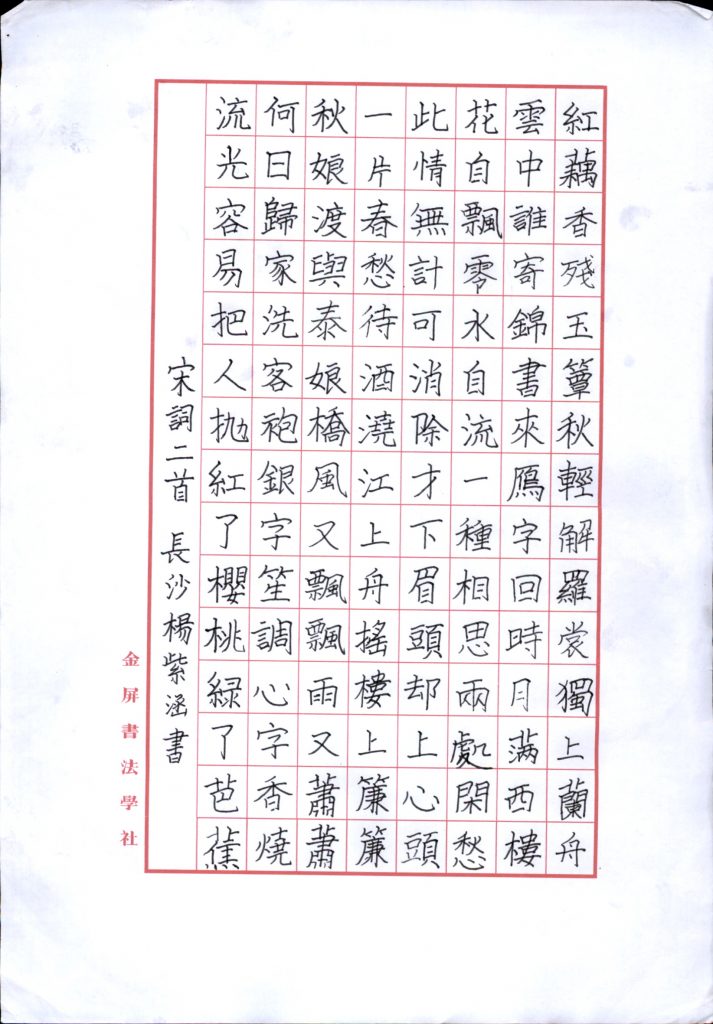 紅藕香殘玉簟秋輕解羅裳獨上蘭舟
雲中誰寄錦書來鴈字回時月满西樓
花自飄零水自流一種相思兩處閑愁
此情無計可消除才下眉頭却上心頭
一片春愁待酒澆江上舟搖樓上簾簾
秋娘渡與泰娘橋風又飄飄雨又蕭蕭
何日歸家洗客袍銀字笙調心字香燒
流光容易把人抛紅了櫻桃緑了芭蕉
宋詞二首 長沙楊紫涵書
金屏書法學社